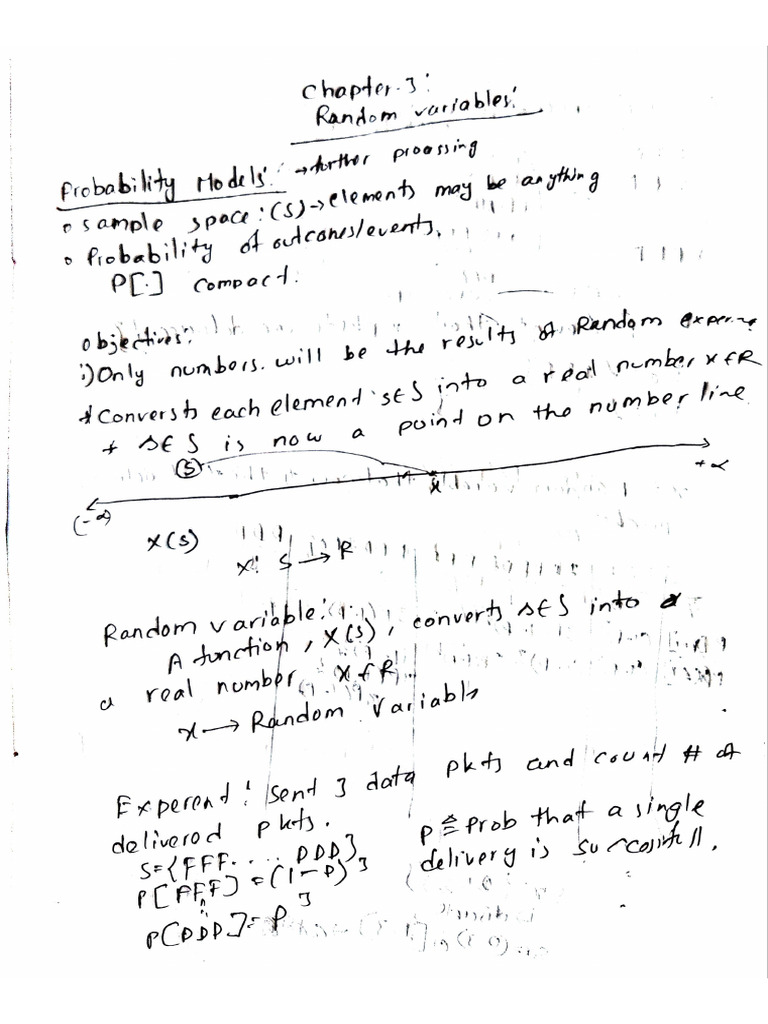 Chapter.3:
Random variables:
Probability Models: → further processing
o sample space: (S) → elements may be anything
o Probability of outcomes/events.
P[.] compact.
objectives:
i) Only numbers. will be the results of Random experime
* Conversts each element s∈S into a real number x∈R
+ s∈S is now a point on the number line
(S) x +∝
(-∝)
X(s)
X: S → R
Random variable:
A function, X(s), converts s∈S into a
a real number x∈R
x → Random Variable
Experent: sent 3 data pkts and count # of
delivered pkts.
S={FFF.... DDD}
P[FFF] = (1-P)³
P[DDD] = P³
P ≜ Prob that a single
delivery is successfull.